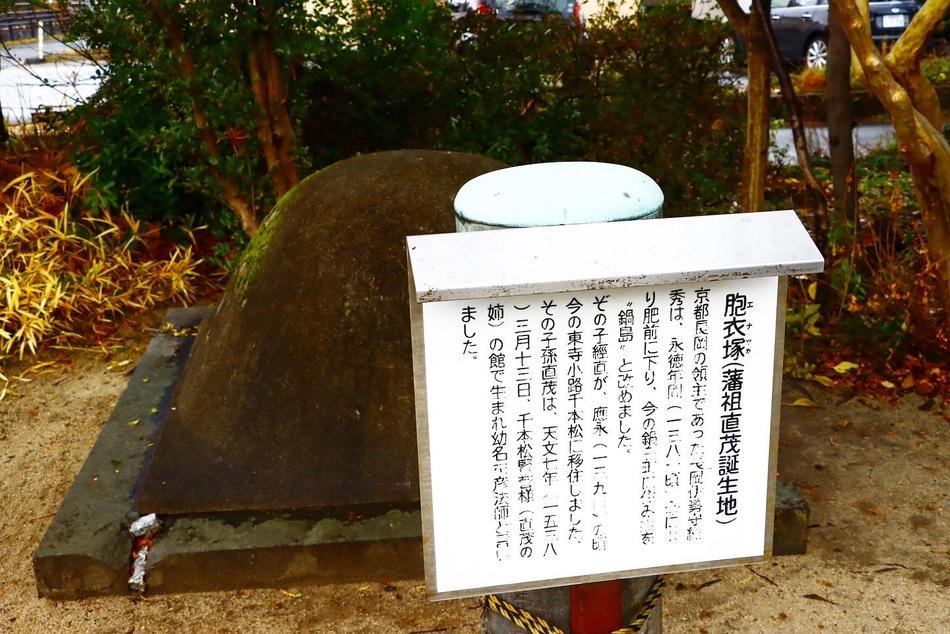 胞衣塚(藩祖直茂誕生地)
エナヅカ
京都長岡の領主であった長岡伊勢守経
秀は、永徳年間(一三八一頃)
り肥前に下り、今の鍋島に住み姓を
"鍋島"と改めました。
その子經直が、應永(一三九 )の頃
今の東寺小路千本松に移住しました。
その子孫直茂は、天文七年(一五三八
)三月十三日、千本松 様(直茂の
姉)の館で生まれ幼名 法師と
ました。